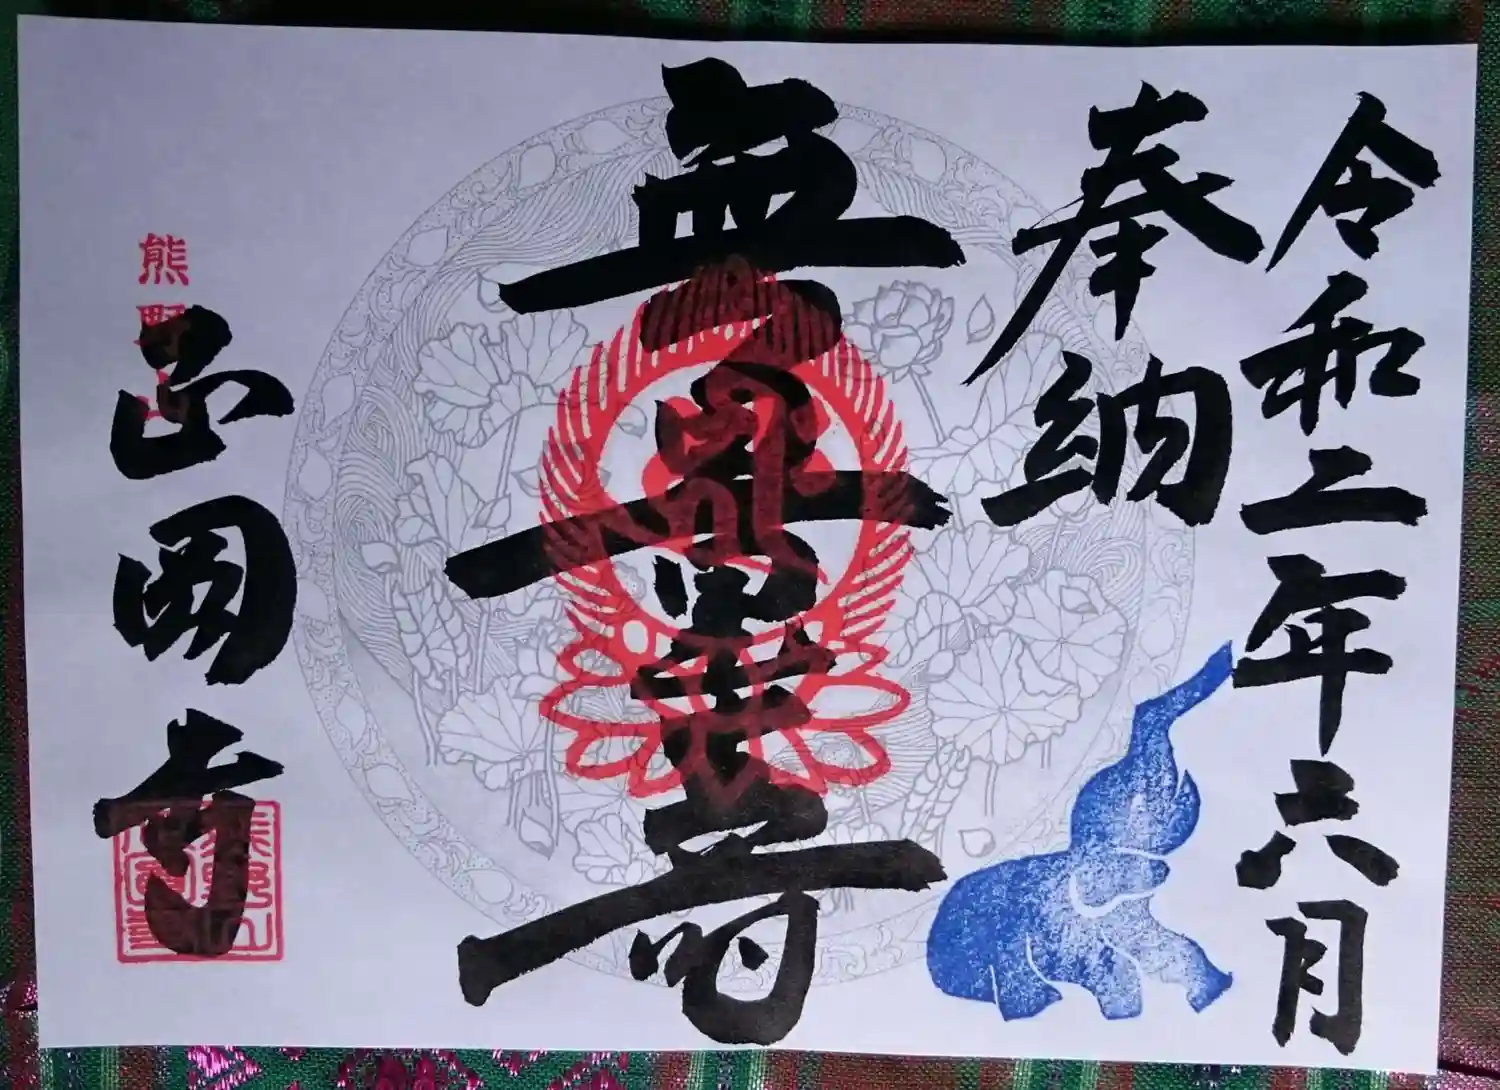 令和二年六月
奉納
無量壽
熊野山
正圓寺